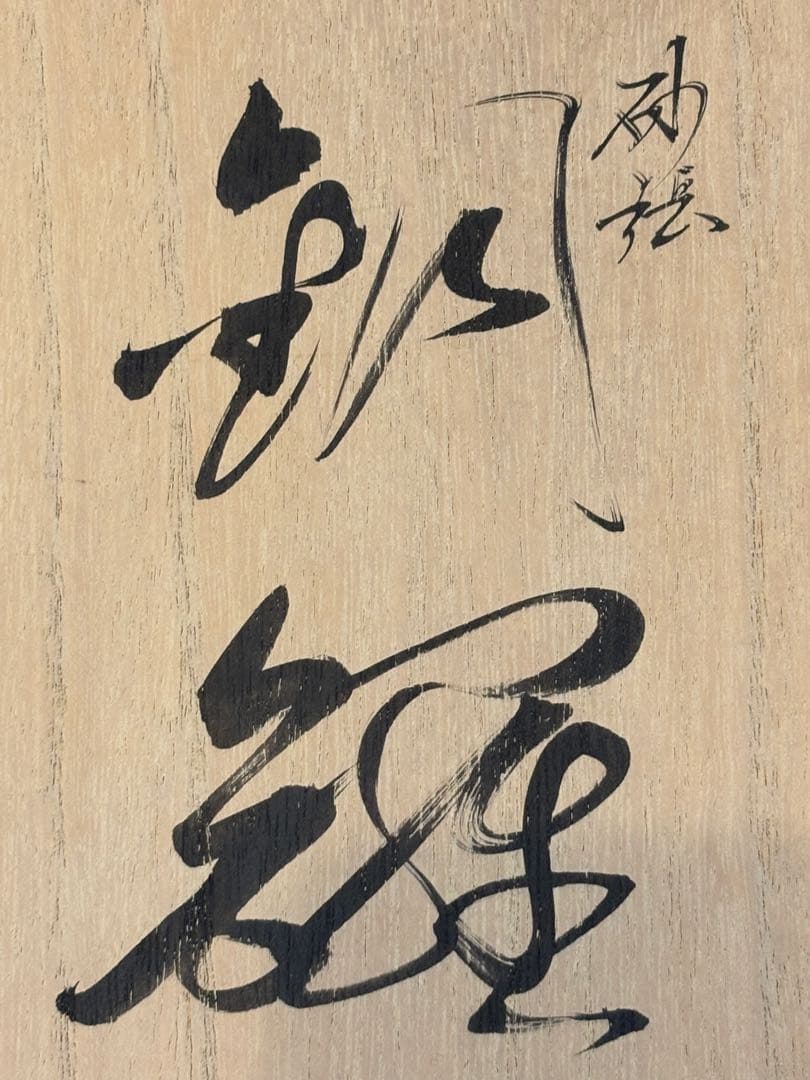 砂張
銅鑼